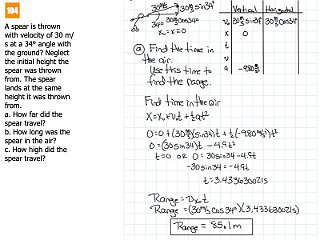 104
A spear is thrown
with velocity of 30 m/
s at a 34° angle with
the ground? Neglect
the initial height the
spear was thrown
from. The spear
lands at the same
height it was thrown
from.
a. How far did the
spear travel?
b. How long was the
spear in the air?
c. How high did the
spear travel?
30m/s
30m/s sin34°
34° 30m/s cos34°
x₀ = x = 0
Vertical Horizontal
V₀ 30m/s sin34° 30m/s cos34°
X 0
t
V
a -9.80m/s²
ⓐ Find the time in
the air.
Use this time to
find the range.
Find time in the air
X=X₀+V₀t+½at²
0=0+(30m/s sin34)t+½(-9.80m/s²)t²
0=(30sin34)t-4.9t²
t=0 OR 0=30sin34-4.9t
-30sin34=-4.9t
t=3.433630021s
Range=V₀ₓt
Range=(30m/s cos34°)(3.433630021s)
Range = 85.1m